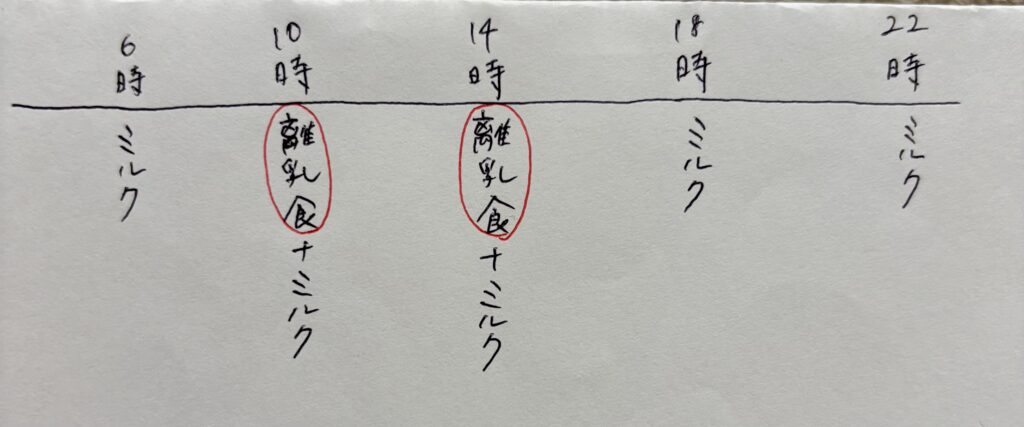 6時 10時 14時 18時 22時
ミルク
離乳食+ミルク
離乳食+ミルク
ミルク
ミルク